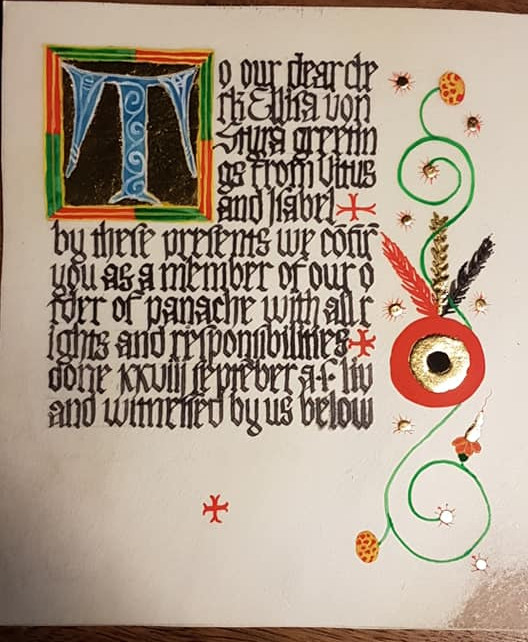 To our dear cle
rk Ellisa von
Styra greetin
gs from Vitus
and Isabel
by these presents we cōfir
you as a member of our o
rder of panache with all r
ights and responsibilities
done xxviij septēber a.s. liv
and witnessed by us below